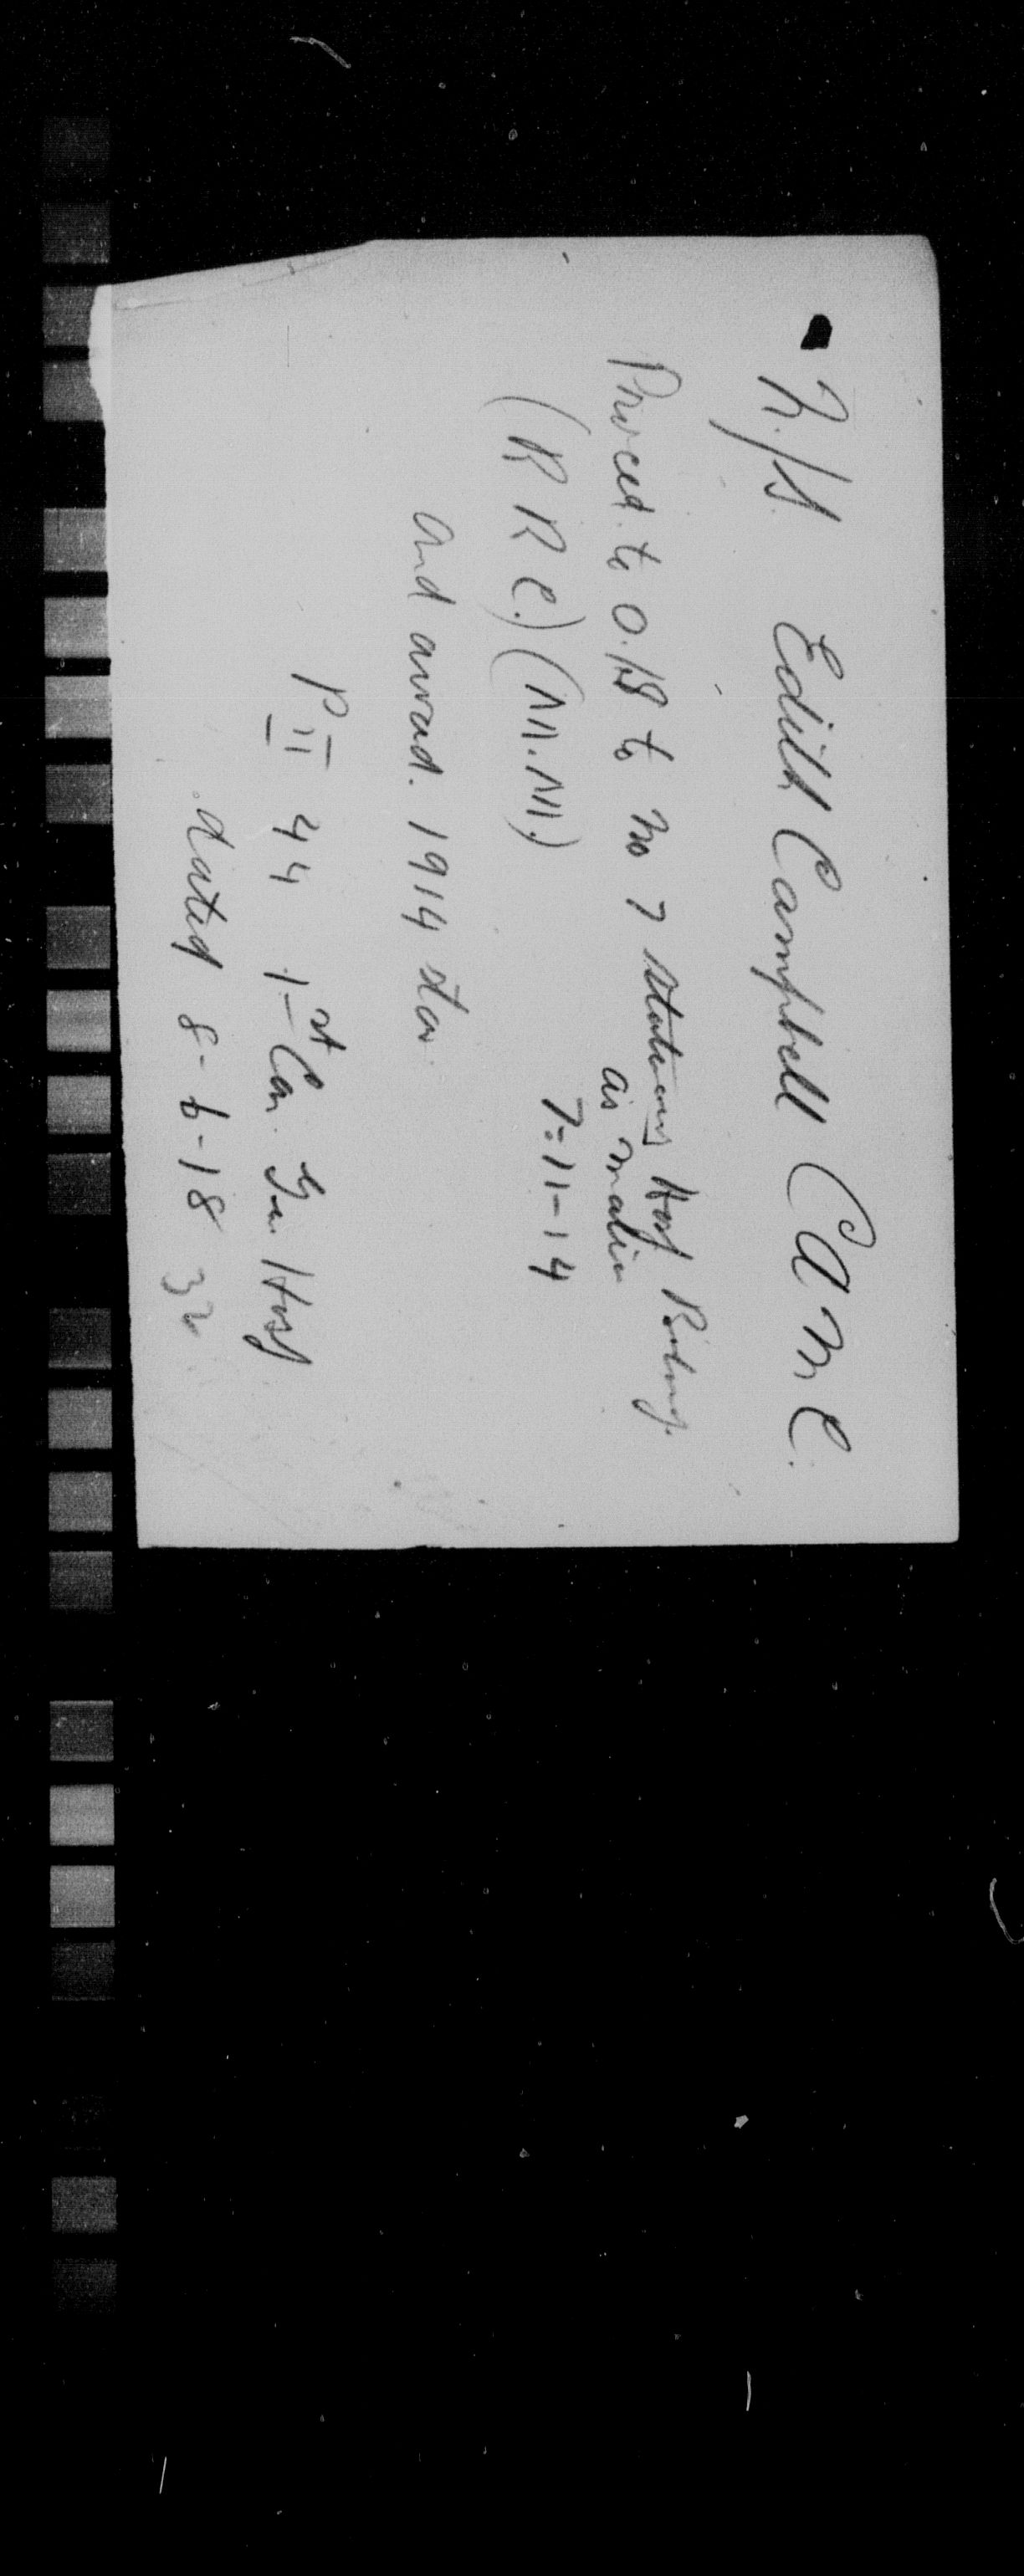 N/S. Edith Campbell C A M C.
Proceed. to O./S to No 7 Stationary Hosp
as matron
(R R C.) (M.M.) 7-11-14
and award. 1914 star.
P II 44 1st Can. Gen. Hosp
dated 8-6-18 32